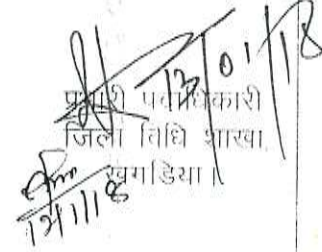 13/01/18
प्रभारी पदाधिकारी
जिला विधि शाखा,
खगड़िया।
12/1/18